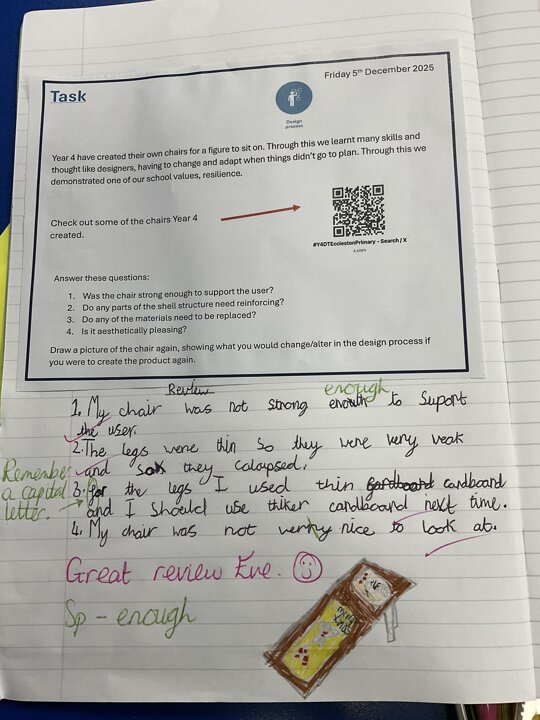 Friday 5th December 2025
Task
Design
process
Year 4 have created their own chairs for a figure to sit on. Through this we learnt many skills and
thought like designers, having to change and adapt when things didn't go to plan. Through this we
demonstrated one of our school values, resilience.
Check out some of the chairs Year 4
created.
#Y4DTEcclestonPrimary - Search / X
x.com
Answer these questions:
1. Was the chair strong enough to support the user?
2. Do any parts of the shell structure need reinforcing?
3. Do any of the materials need to be replaced?
4. Is it aesthetically pleasing?
Draw a picture of the chair again, showing what you would change/alter in the design process if
you were to create the product again.
Review
enough
1. My chair was not strong to Suport
the user.
2. The legs were thin so they were very weak
and they colapsed.
Remember
a capital
letter.
3. for the legs I used thin cardboard cardboard
and I should use thiker cardboard next time.
4. My chair was not very nice to look at.
Great review Eve.
Sp - enough